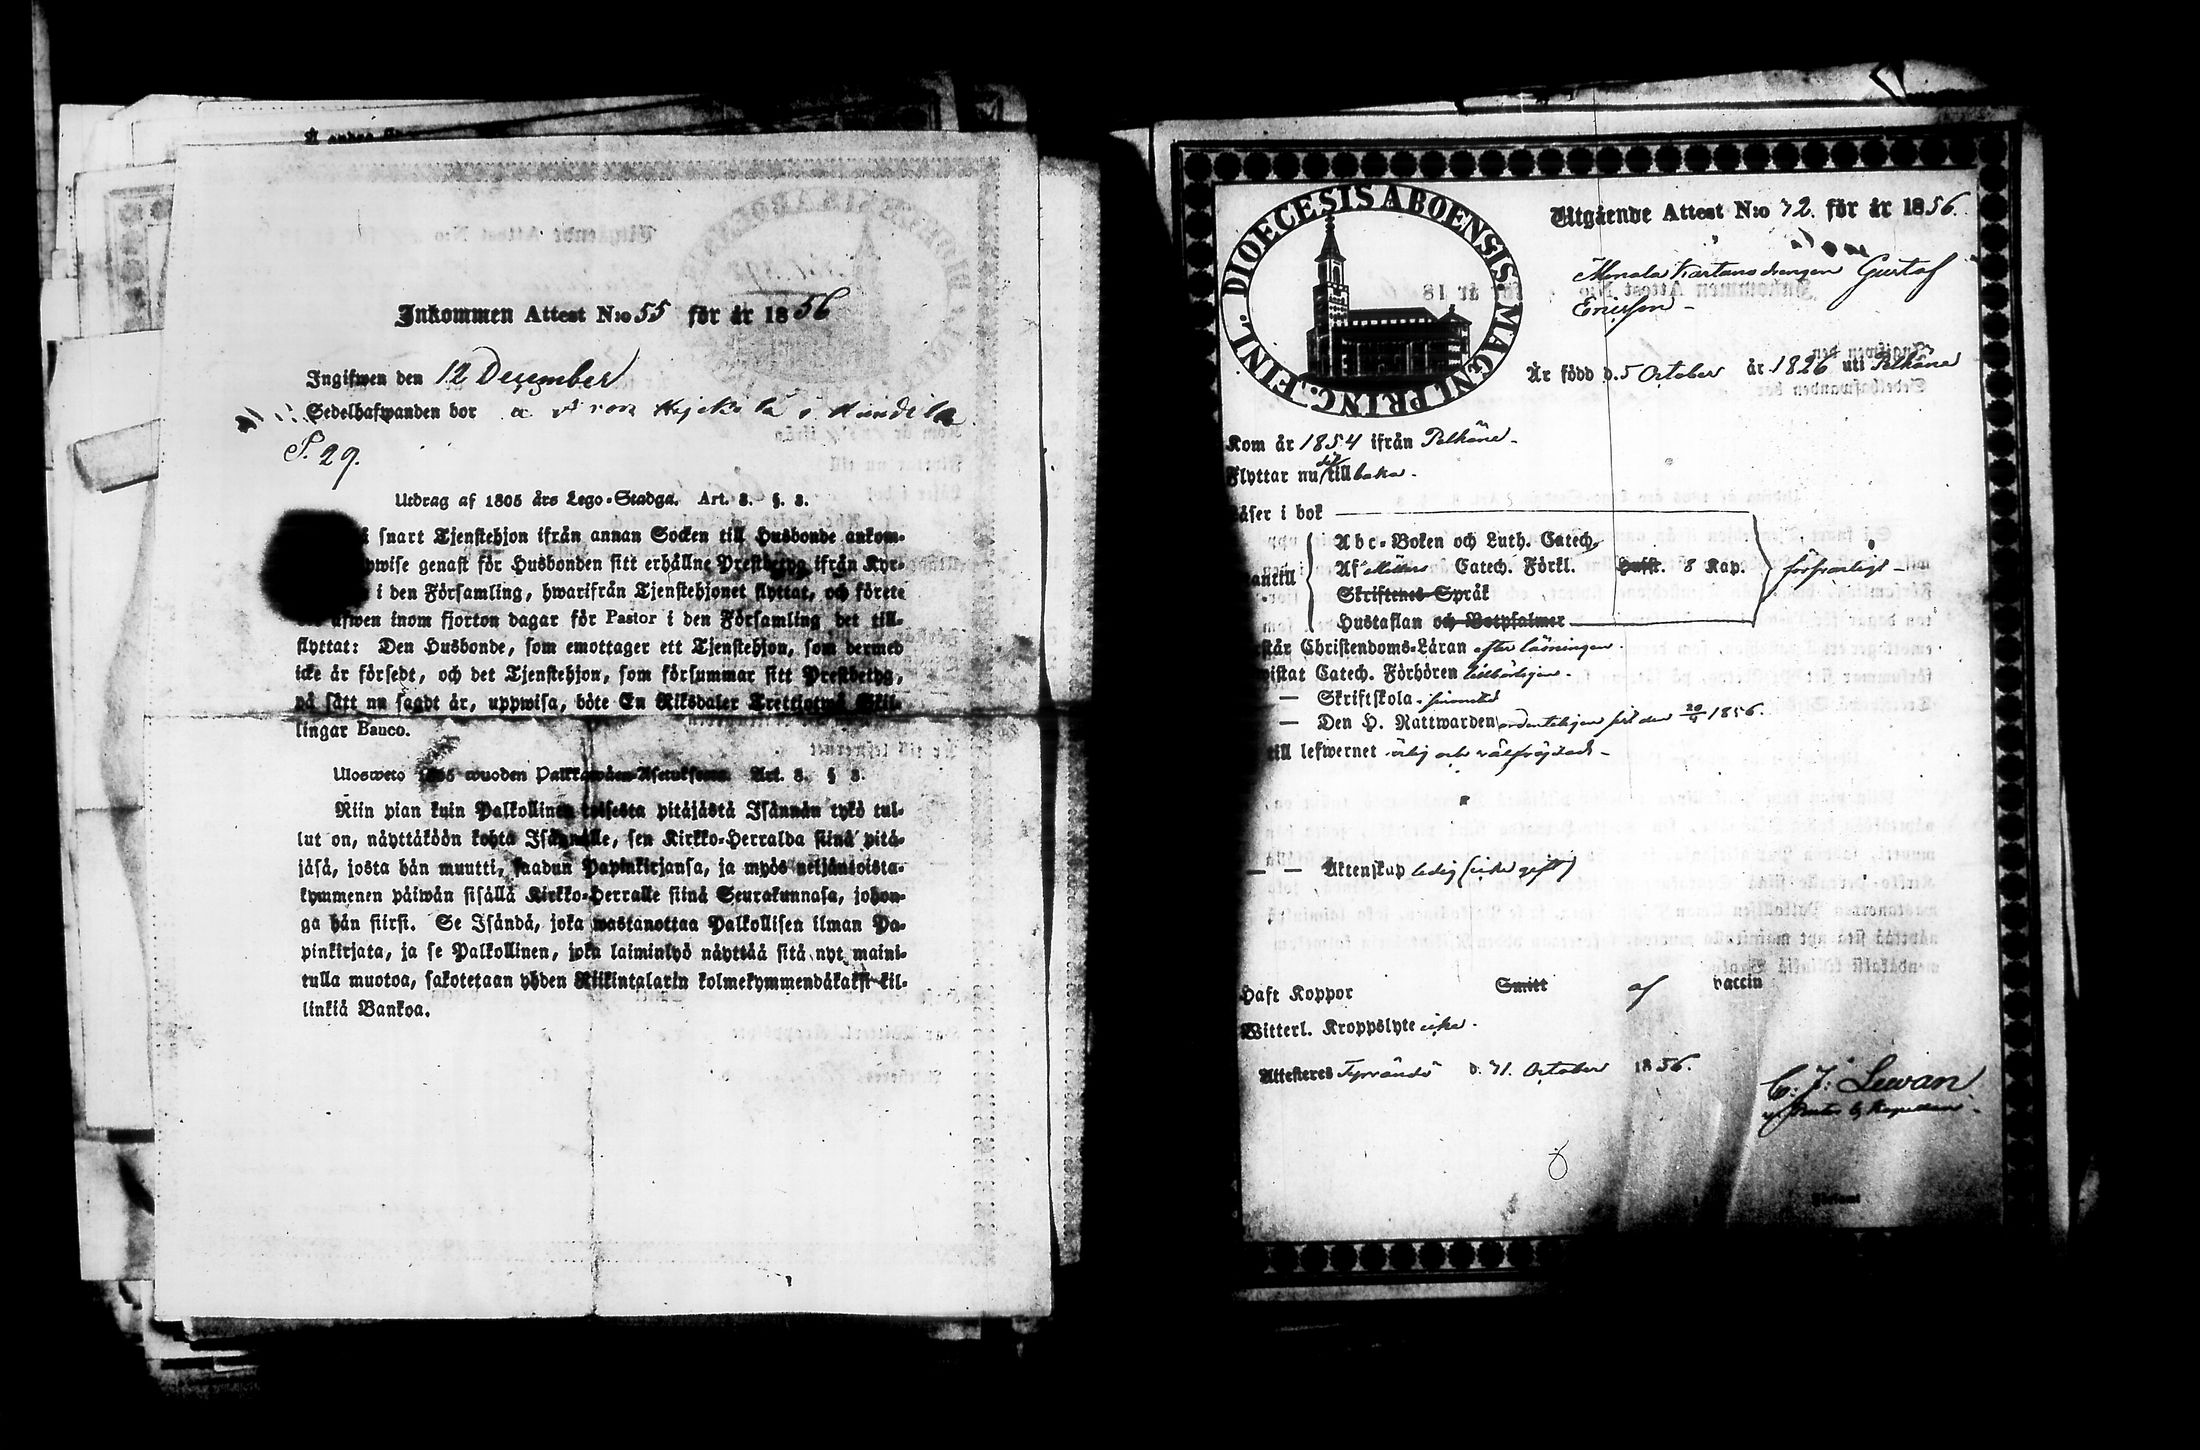 Inkommen Attest N:o 55 för år 1856
Ingifwen den 12 December
Sedelhafwanden bor
S. 29.
Utdrag af 1805 års Lego-Stadga. Art. 3. §. 3.
snart Tjenstehjon ifrån annan Socken till Husbonde ankom-
wise genast för Husbonden sitt erhållne Prestbetyg ifrån Kyr-
i den Församling, hwarifrån Tjenstehjonet flyttat, och förete
äfwen inom fjorton dagar för Pastor i den Församling det till-
flyttat: Den Husbonde, som emottager ett Tjenstehjon, som dermed
icke är försedt, och det Tjenstehjon, som försummar sitt Prestbetyg,
på sätt nu sagdt är, uppwisa, böte En Riksdaler Trettiotwå Skil-
lingar Banco.
Ulosweto 1805 wuoden Palkkawäen-Asetuksesta. Art. 3. § 3.
Niin pian kuin Palkollinen toisesta pitäjästä Isännän tykö tul-
lut on, näyttäköön kohta Isännälle, sen Kirkko-Herralda siinä pitä-
jäsä, josta hän muutti, saadun Papinkirjansa, ja myös neljäntoista-
kymmenen päiwän sisällä Kirkko-Herralle siinä Seurakunnasa, johon-
ga hän siirsi. Se Isändä, joka wastanottaa Palkollisen ilman Pa-
pinkirjata, ja se Palkollinen, joka laiminlyö näyttää sitä nyt maini-
tulla muotoa, sakotetaan yhden Riikintalarin kolmekymmendäkaksi kil-
linkiä Bankoa.
DIOECESIS ABOENSIS. MAGNI PRINC. FINL.
Utgående Attest N:o 72. för år 1856.
Gustaf
Ericsson
Är född d. 5 October år 1826 uti Pelkäne
Kom år 1854 ifrån Pelkäne
Flyttar nu dit tillbaka.
läser i bok
Abc-Boken och Luth. Catech.
Af Catech. Förkl. Husst. 8 Kap. försvarligt
Skriftenes Språk
Hustaflan och Botpsalmer
Christendoms-Läran efter läsningen
Catech. Förhören
— Skriftskola
— Den H. Nattwarden sist den 20/9 1856.
till lefwernet ärlig och välfrejdad
— — Äktenskap ledig (icke gift)
Haft Koppor Smitt af vaccin
Witterl. Kroppslyte icke.
Attesteras Tyrvändö d. 31. October 1856.
C. J. Lewan